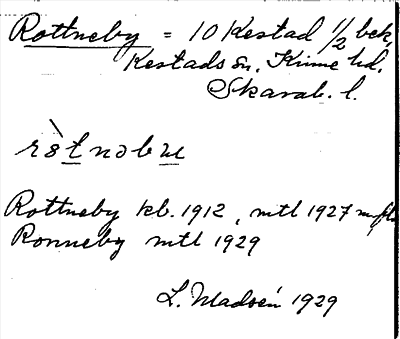 Rottneby = 10 Kestad 1/2 bck,
Kestads sn. Kinne hd.
Skarab. l.
ròt nəb u
Rottneby kb. 1912, mtl 1927 m fl
Ronneby mtl 1929
L. Madsén 1929